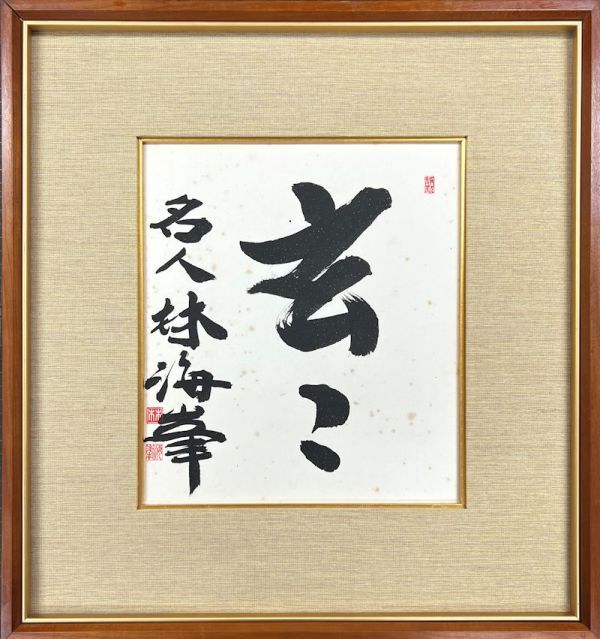 玄〻
名人林海峯